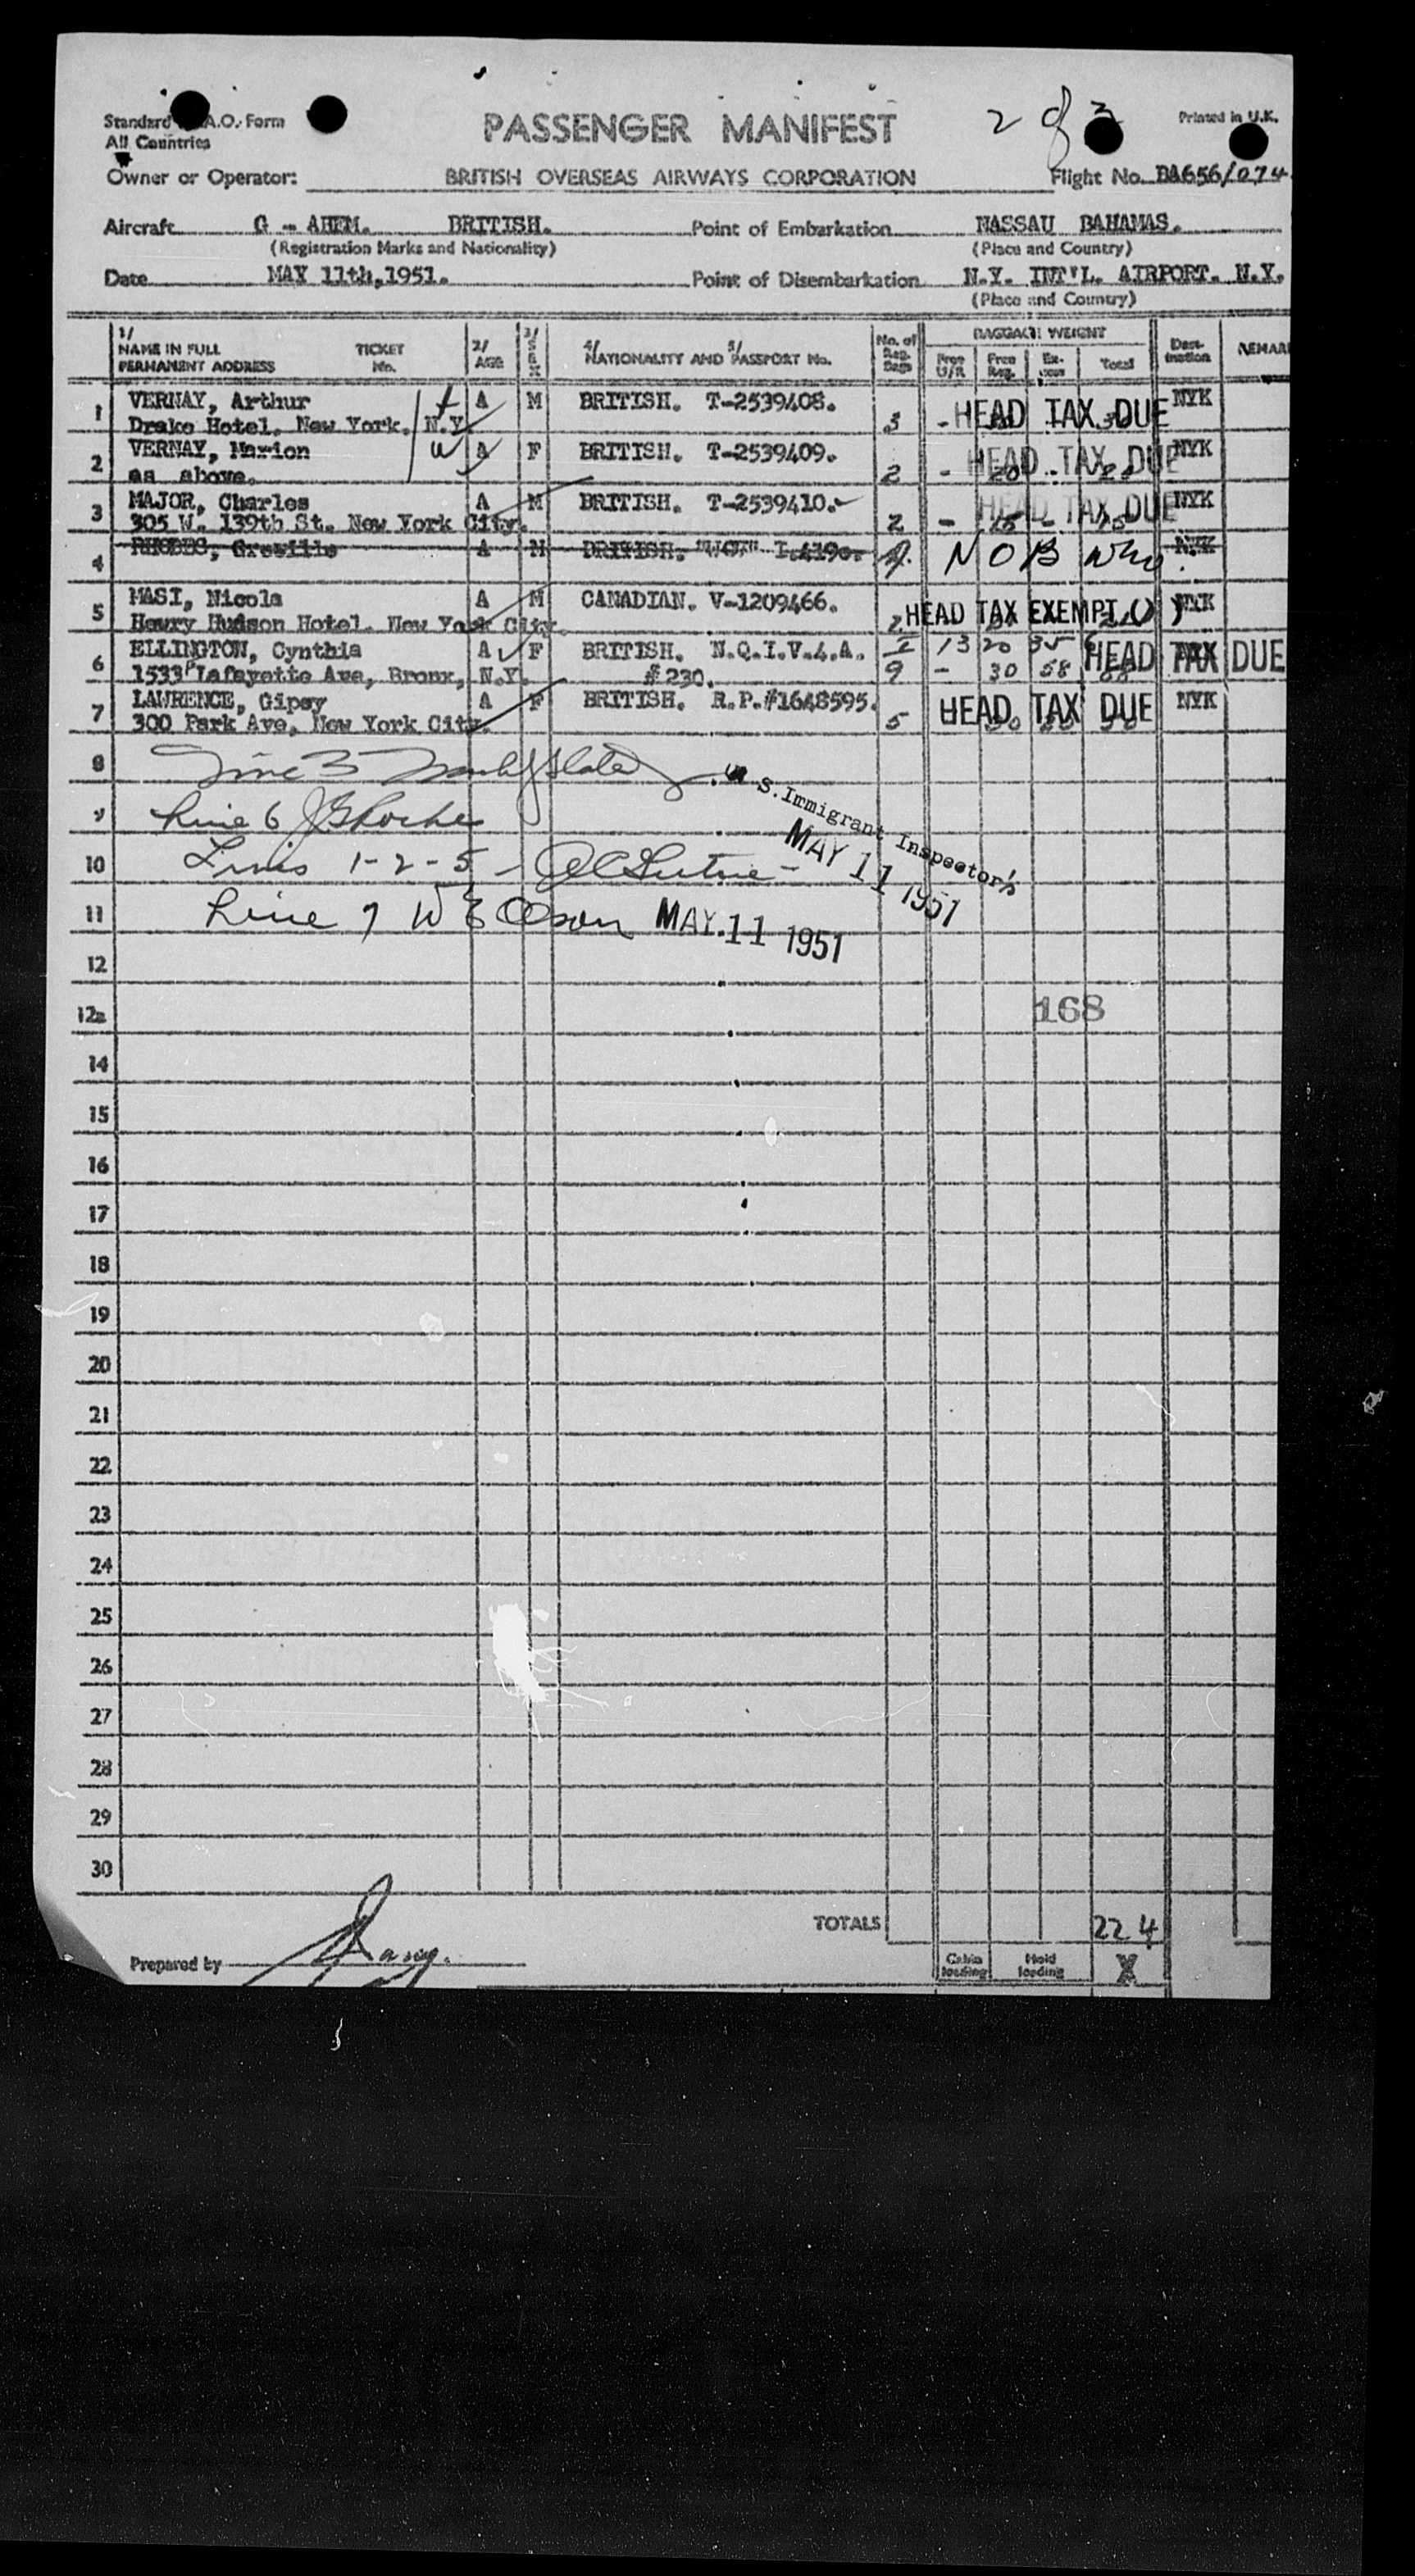 Standard A.O. Form
All Countries
PASSENGER MANIFEST
2 of 3
Printed in U.K.
Owner or Operator: BRITISH OVERSEAS AIRWAYS CORPORATION Flight No. BA656/074
Aircraft G - AHEM. BRITISH. Point of Embarkation NASSAU BAHAMAS.
(Registration Marks and Nationality) (Place and Country)
Date MAY 11th,1951. Point of Disembarkation N.Y. INT'L. AIRPORT. N.Y.
(Place and Country)
1/ NAME IN FULL PERMANENT ADDRESS TICKET No. 2/ AGE 3/ SEX 4/ NATIONALITY AND 5/ PASSPORT No. No. of Reg. Bags BAGGAGE WEIGHT Free U/R Free Reg. Ex-cess Total Dest-ination REMAR
1 VERNAY, Arthur A M BRITISH. T-2539408. 3 - HEAD TAX DUE NYK
Drake Hotel, New York. N.Y.
2 VERNAY, Marion A F BRITISH. T-2539409. 2 - 20 - 20 HEAD TAX DUE NYK
as above.
3 MAJOR, Charles A M BRITISH. T-2539410. 2 - 15 - 15 HEAD TAX DUE NYK
305 W. 139th St. New York City.
4 RHODES, Greville A M BRITISH. NOB NYK
5 MASI, Nicola A M CANADIAN. V-1209466. 2 HEAD TAX EXEMPT ( ) NYK
Henry Hudson Hotel. New York City.
6 ELLINGTON, Cynthia A F BRITISH. N.Q.I.V.4.A. 1 13 20 35 HEAD TAX DUE
1533 Lafayette Ave, Bronx, N.Y. #230. 9 - 30 58 88
7 LAWRENCE, Gipsy A F BRITISH. R.P.#1648595. 5 HEAD TAX DUE NYK
300 Park Ave, New York City.
8 Line 3
U.S.Immigrant Inspector's
9 Line 6
MAY 11 1951
10 Lines 1-2-5 -
11 Line 7 W E Olson MAY 11 1951
12
12a 168
14
15
16
17
18
19
20
21
22
23
24
25
26
27
28
29
30
TOTALS 224
Prepared by
Cabin loading Hold loading X